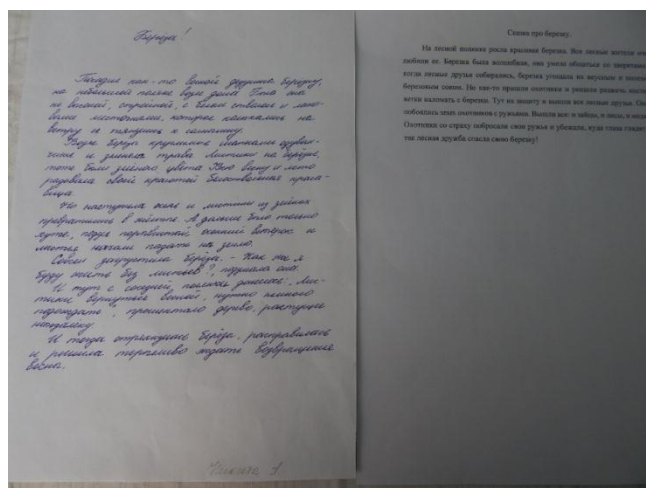 Берёза!
Посадил как-то весной дедушка берёзку,
на небольшой поляне возле дома. Была она
не высокой, стройной, с белым стволом и мно-
гими листочками, которые колыхались на
ветру и тянулись к солнышку.
Вокруг берёзы кружились шапками одуван-
чики и зеленела трава. Листики на берёзке,
тоже были зелёного цвета. Всю весну и лето
радовала своей красотой белоствольная краса-
вица.
Но наступила осень и листики из зелёных
превратились в жёлтые. А дальше было только
хуже, подул порывистый осенний ветерок и
листья начали падать на землю.
Совсем загрустила берёза. - Как же я
буду жить без листьев?, подумала она.
И тут с соседней полянки донеслось:, Лис-
тики вернутся весной, нужно немного
подождать", прошептало дерево, растущее
неподалёку.
И тогда отряхнулась берёза, расправилась
и решила терпеливо ждать возвращения
весны.
Никита Л.
Сказка про березку.
На лесной полянке росла красивая березка. Все лесные жители оч
любили ее. Березка была волшебная, она умела общаться со зверюшк
когда лесные друзья собирались, березка угощала их вкусным и полезн
березовым соком. Но как-то пришли охотники и решили разжечь кост
ветки наломать с березки. Тут на защиту и вышли все лесные друзья. Они
побоялись этих охотников с ружьями. Вышли все: и зайцы, и лисы, и медв
Охотники со страху побросали свои ружья и убежали, куда глаза глядят
так лесная дружба спасла свою березку!